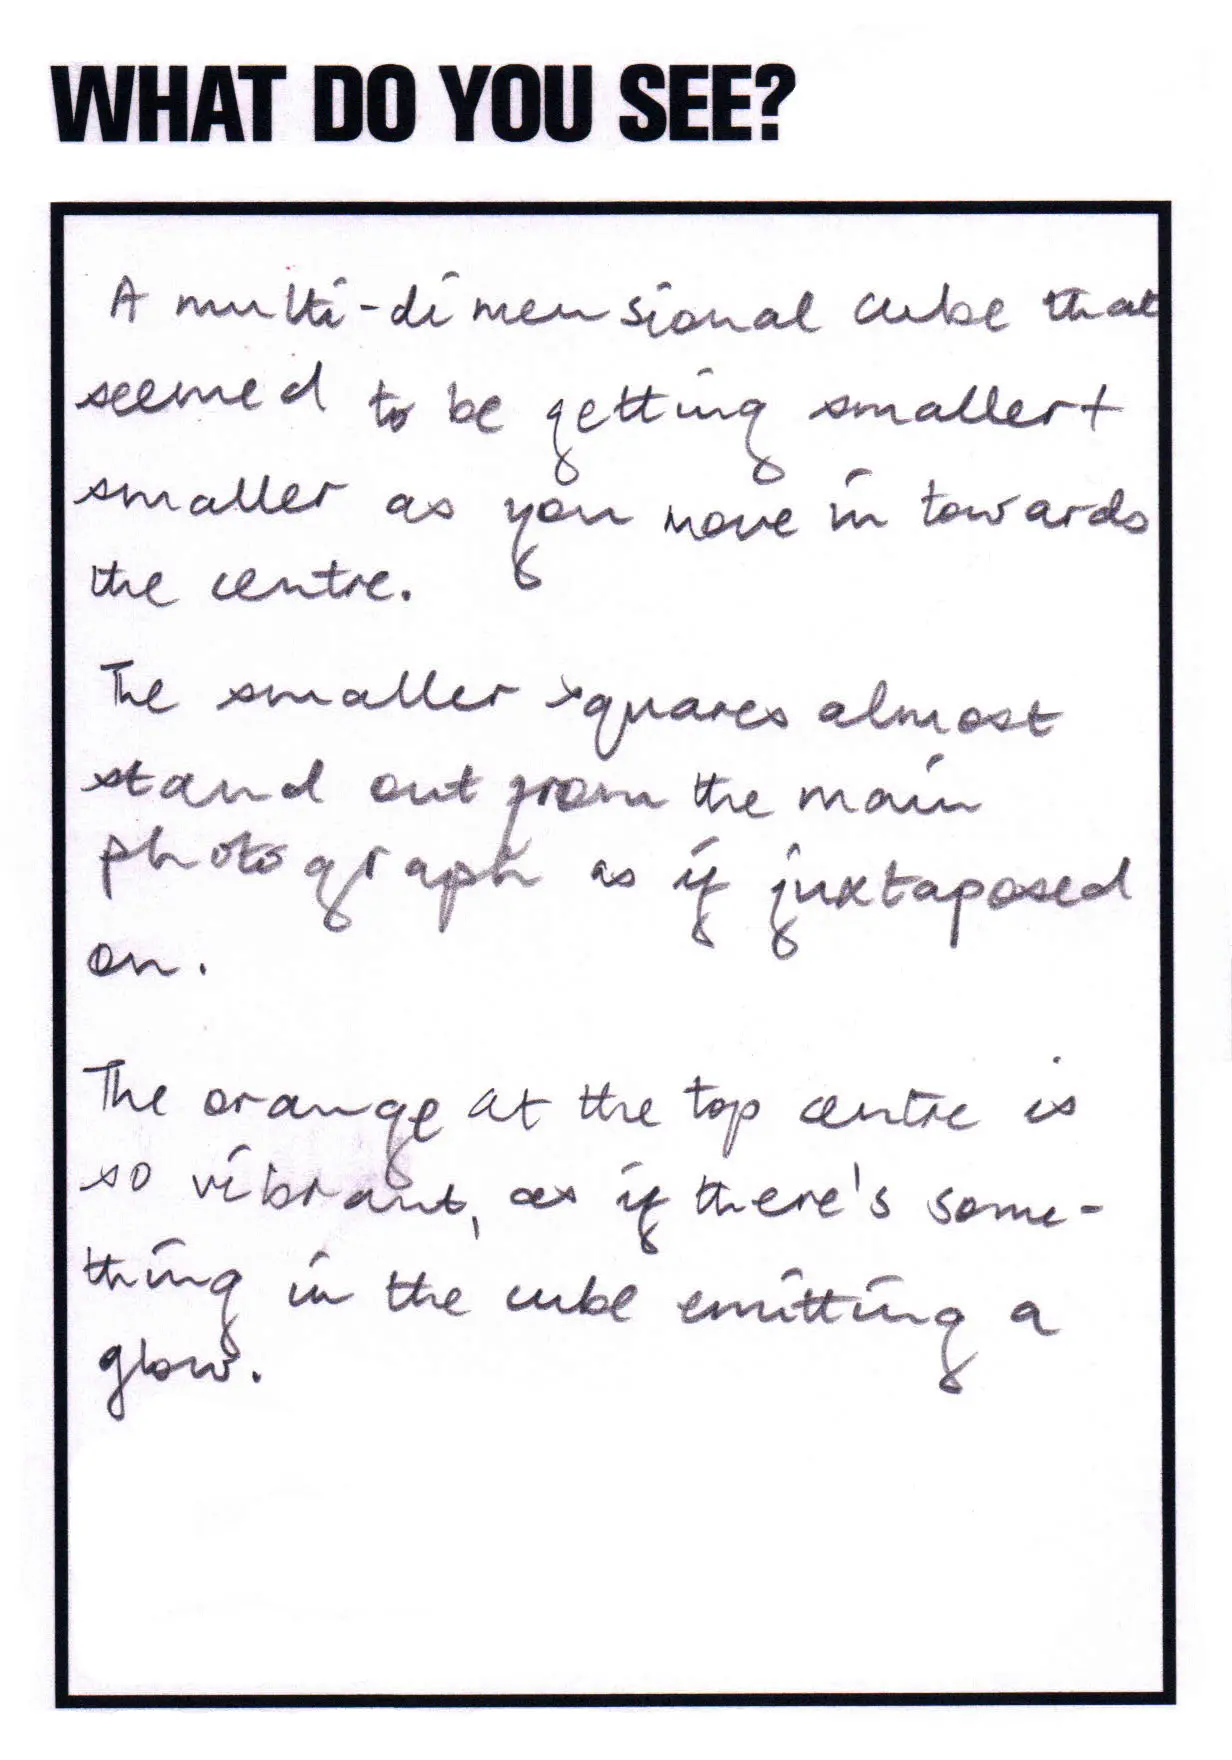 WHAT DO YOU SEE?
A multi-dimensional cube that
seemed to be getting smaller +
smaller as you move in towards
the centre.
The smaller squares almost
stand out from the main
photograph as if juxtaposed
on.
The orange at the top centre is
so vibrant, as if there's some-
thing in the cube emitting a
glow.